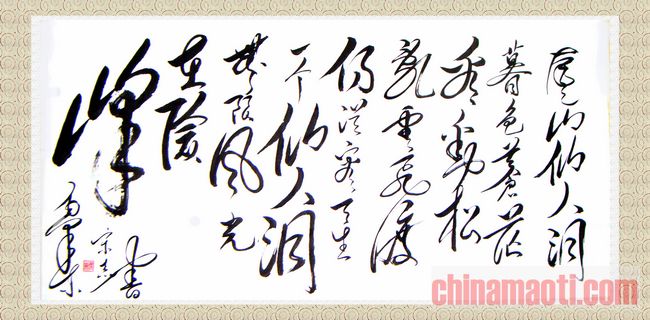 庐山仙人洞
暮色苍茫
看劲松
乱云飞渡
仍从容天生
一个仙人洞
无限风光
在险
峰
宋志书
chinamaoti.com